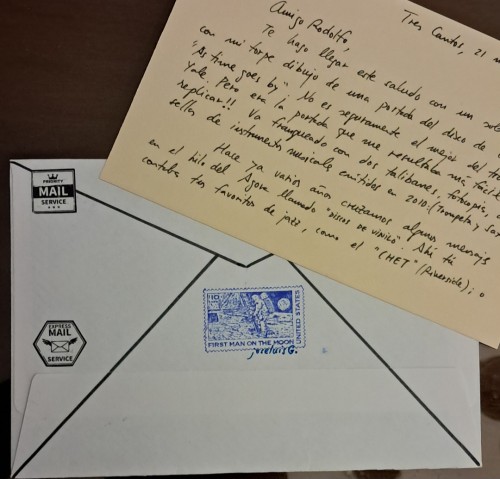 Tres Cantos, 21 m
Amigo Rodolfo,
Te hago llegar este saludo con un so
con mi torpe dibujo de una portada del disco de
"As time goes by". No es seguramente el mejor del tr
Yale. Pero era la portada que me resultaba más fácil
replicar!! Va franqueado con dos fotocopia,
sellos de instrumentos musicales emitidos en 2010: (Trompeta)
Hace ya varios años cruzamos algunos mensajes
en el hilo del Ágora llamado "DISCOS DE VINILO". Ahí tú
contabas tus favoritos de jazz, como el "CHET" (Riverside);
PRIORITY
MAIL
SERVICE
EXPRESS
MAIL
SERVICE
10
UNITED STATES
FIRST MAN ON THE MOON
joseluis G.